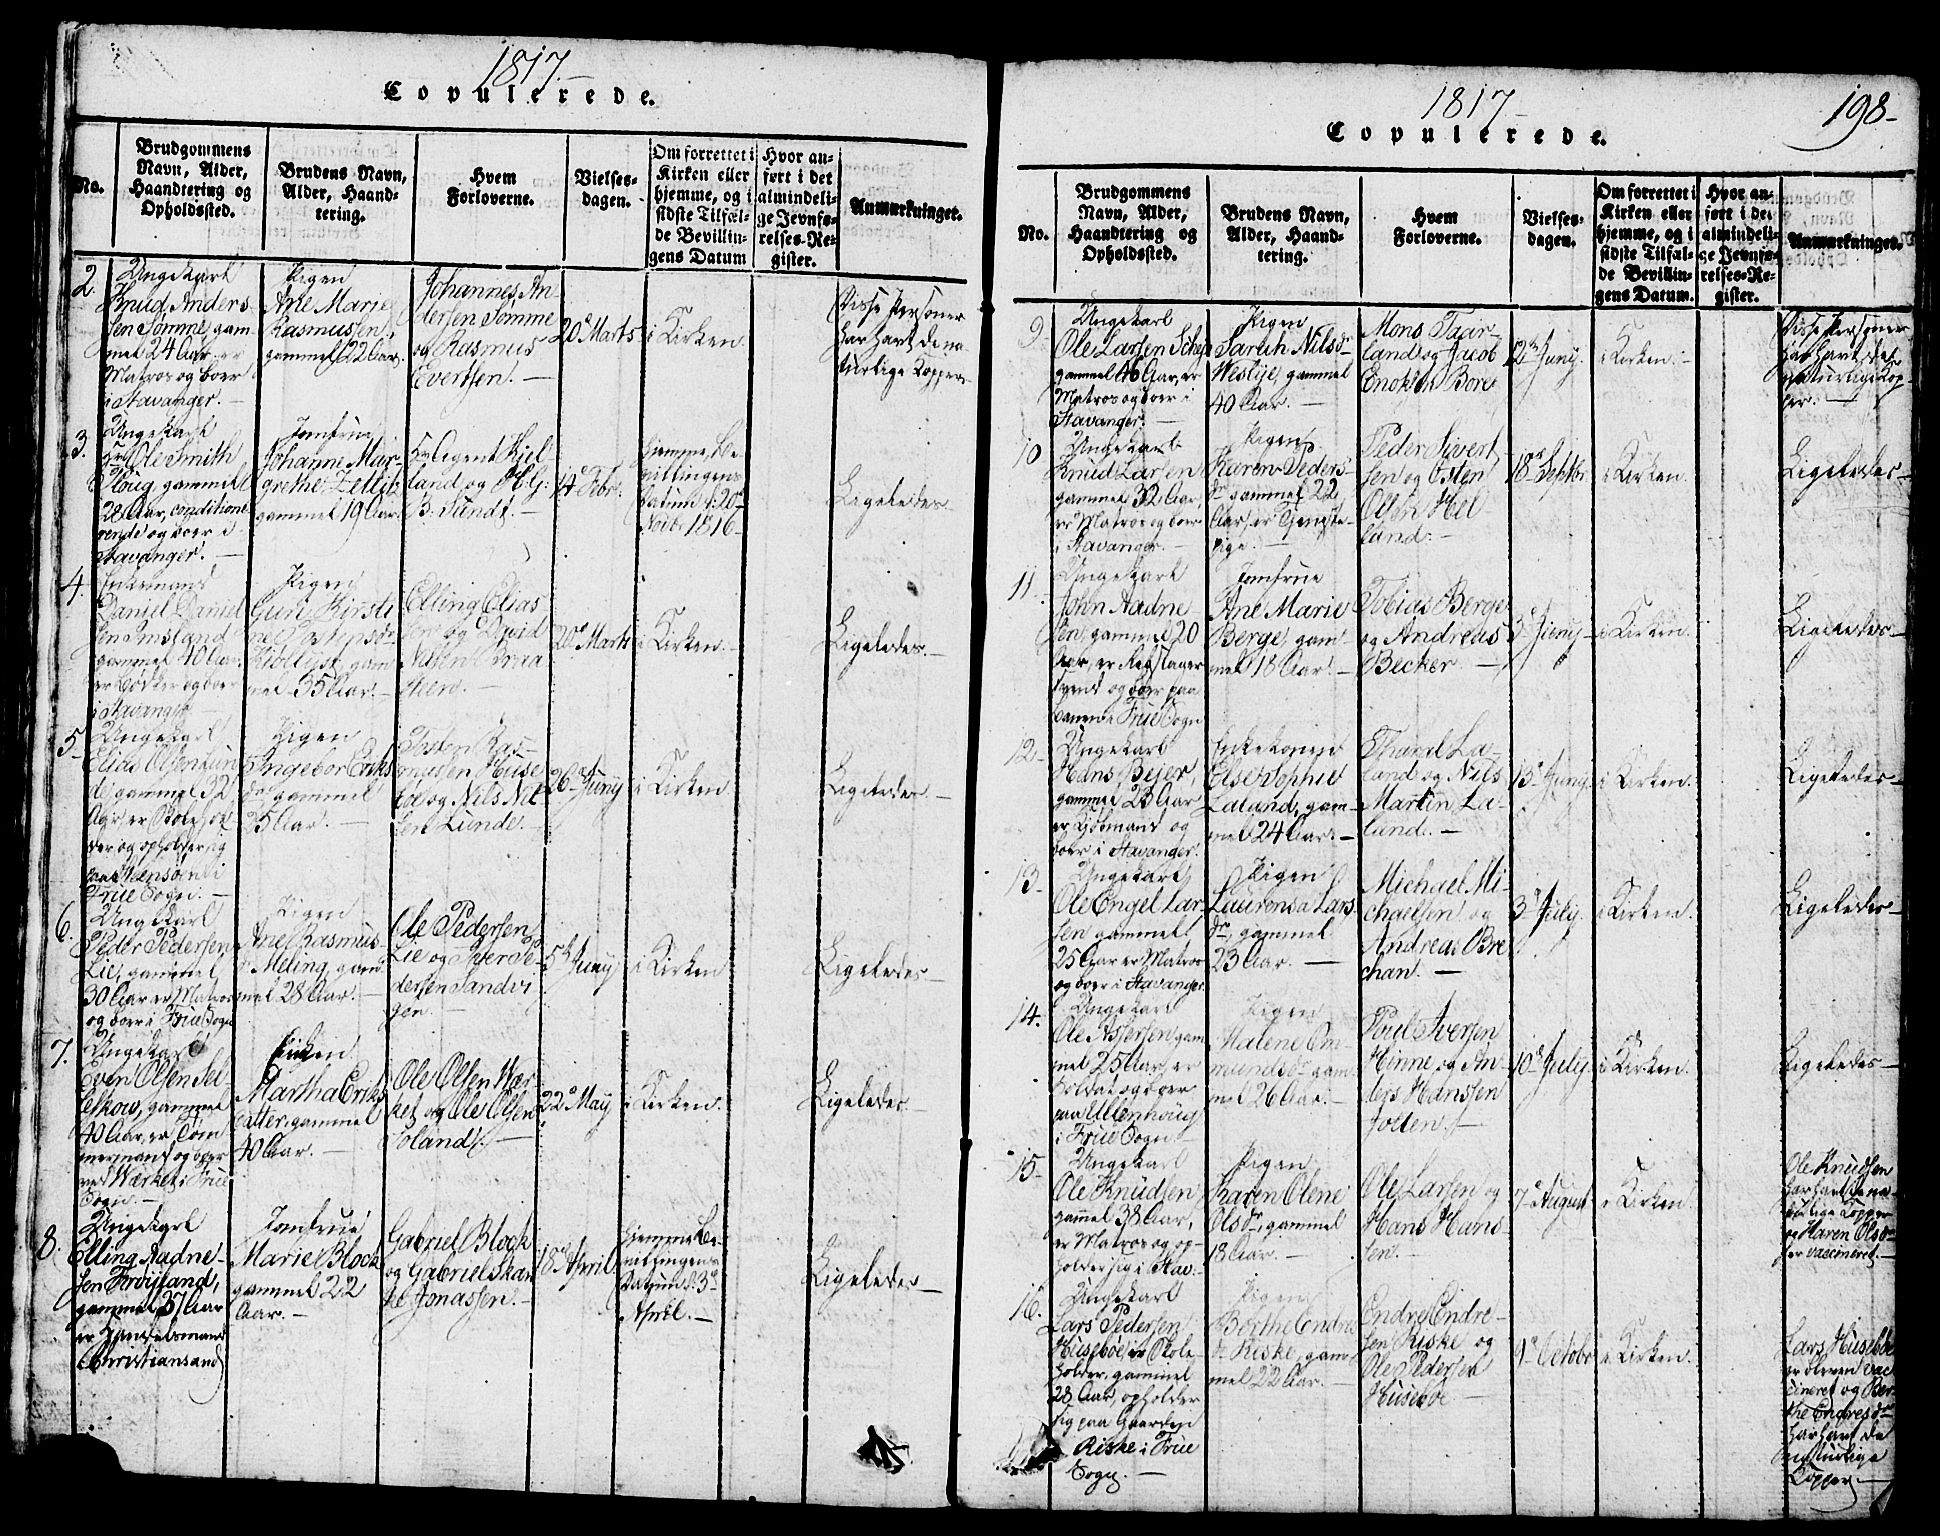 1817.-
Copulerede.
No.
Brudgommens
Navn, Alder,
Haandtering og
Opholdssted.
Brudens Navn,
Alder, Haand-
tering.
Hvem
Forloverne.
Vielses-
dagen.
Om forrettet i
Kirken eller
hjemme, og i
sidste Tilfæl-
de Bevillin-
gens Datum
Hvor an-
ført i det
almindeli-
ge Jevnfø-
relses-Re-
gister.
Anmærkninger.
2.
Ungekarl
Knud Anders
sen Tomme, gam-
mel 24 Aar er
Matros og boer
i Stavanger. -
Pigen
Ane Marie
Rasmussen,
gammel 22 Aar.
Johannes An
dersen Tomme
og Rasmus
Evertsen. -
20de Marts
i Kirken
Disse Personer
har havt de na
turlige Kopper
3.
Ungekarl
Hr Ole Smith
Ploug gammel
28 Aar, conditione
rende og boer i
Stavanger. -
Jomfrue
Johanne Mar-
grethe Zetlitz
gammel 19 Aar.
Hr Agent Kiel
land og
B: Sundt. -
14de Febr.
hjemme, Be-
villingens
Datum d: 20de
Novbr 1816-
Ligeledes-
4.
Enkemand
Daniel Daniel
sen Imsland
gammel 40 Aar,
er Bødker og boer
i Stavanger
Pigen
Guri Kirsti
ne Tostensdr
gam
mel 35 Aar.-
Elling Elias
sen og David
Nilsen Braa
steen. -
20de Marts
i Kirken. -
Ligeledes.-
5.
Ungekarl
Elias Olsen Lun
de, gammel 32
Aar er Skolehol
der og opholder sig
paa
Frue Sogn. -
Pigen
Ingebor Eriks
dr gammel
25 Aar. -
Tosten Ras-
mussen Huse
bøe og Nils Nil
sen Lunde. -
26de Juny
i Kirken
Ligeledes. -
6.
Ungekarl
Peder Pedersen
Lie, gammel
30 Aar er Matros
og boer i Frue Sogn
Pigen
Ane Rasmus
dr Meling, gam
mel 28 Aar. -
Ole Pedersen
Lie og Iver Pe-
dersen Sandvi
gen. -
5te Juny
i Kirken
Ligeledes-
7.
Ungekarl
Even Olsen Sel-
leskow, gammel
40 Aar, er Tøm
mermand og boer
ved Wærket i Frue
Sogn. -
Pigen
Martha Eriks
datter, gammel
40 Aar. -
Ole Olsen Wær-
ket og Ole Olsen
Joland. -
22de May
i Kirken.
Ligeledes-
8.
Ungekarl
Elling Aadne-
sen Frøyland,
gammel 37 Aar
er Handelsmand
i Christiansand
Jomfrue
Marie Block
gammel 22
Aar. -
Gabriel Block
og Gabriel Skan
ke Jonassen. -
18de April.
hjemme Be-
villingens
Datum d: 3de
April. -
Ligeledes-
1817-
198-
Copulerede.
No.
Brudgommens
Navn, Alder,
Haandtering og
Opholdssted.
Brudens Navn,
Alder, Haand-
tering.
Hvem
Forloverne.
Vielses-
dagen.
Om forrettet i
Kirken eller
hjemme, og i
sidste Tilfæl-
de Bevillin-
gens Datum.
Hvor an-
ført i det
almindeli-
ge Jevnfø-
relses-Re-
gister.
Anmærkninger.
9.
Ungekarl
Ole Larsen
gammel 40 Aar, er
Matros og boer i
Stavanger. -
Pigen
Sarah Nilsdr
gammel
40 Aar. -
Mons Taar-
land og Jacob
Enoksen Bore
12te Juny.
i Kirken. -
Disse Personer
har havt de
naturlige Kop-
per. -
10
Ungekarl
Knud Larsen
gammel 32 Aar,
er Matros og boer
i Stavanger. -
Pigen
Karen Peders
dr gammel 22
Aar, er Tjeneste-
pige. -
Peder Sivert
sen og Østen
Olsen Hel
land. -
18de Septbr.
i Kirken.
Ligeledes-
11.
Ungekarl
John Aadne
sen, gammel 20
Aar, er Rebslager
svend og boer paa
Frue Sogn
Jomfrue
Ane Marie
Berge, gam
mel 18 Aar. -
Tobias Berge
og Andreas
Becker -
3de Juny-
i Kirken.
Ligeledes-
12-
Ungekarl
Hans Beyer,
gammel 23 Aar
er Kjøbmand og
boer i Stavanger.
Enkekonen
Else Sophie
Laland, gam-
mel 24 Aar. -
La-
land og Nils
Martin La-
land. -
13de Juny
i Kirken.
Ligeledes-
13-
Ungekarl
Ole Engel Lar-
sen gammel
25 Aar er Matros
og boer i Stavanger
Pigen
Laurensa Lars
dr, gammel
23 Aar. -
Michael Mi-
chaelsen og
Andreas Bre
chan. -
3de July.
i Kirken.
Ligeledes-
14.
Ungekarl
Ole Assersen gam
mel 25 Aar, er
Soldat og boer
paa Ullenhoug
i Frue Sogn -
Pigen
Malene Om
mundsdr gam
mel 26 Aar. -
Poul Iversen
Hinne og An-
ders Hanssen
Jotten. -
10de July.
i Kirken.
Ligeledes-
15-
Ungekarl
Ole Knudsen
gammel 38 Aar,
er Matros og op-
holder sig i Stav.
Pigen
Karen Olene
Olsdr, gammel
18 Aar. -
Ole Larsen og
Hans Hans-
sen. -
7de August
i Kirken.
Ole Knudsen
har havt de na-
turlige Kopper
og Karen Olsdr
er vaccineret.-
16.
Ungekarl
Lars Pedersen
Huseboe, er Skole-
holder, gammel
28 Aar, opholder
sig paa Gaarden
Riske i Frue
Sogn. -
Pigen
Berthe Endres
dr Riske, gam-
mel 22 Aar. -
Endre Endre-
sen Riske og
Ole Pedersen
Huseboe -
9de Octobr
i Kirken.
Lars Huseboe
er bleven vac
cineret og Ber-
the Endresdr
har havt de
naturlige
Kopper -